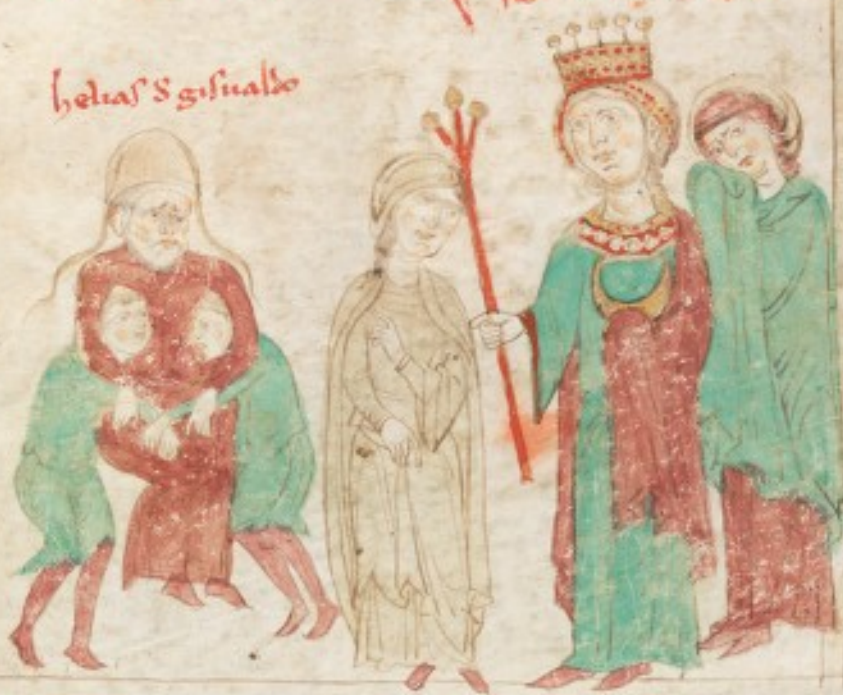 helias 8 gisualdo